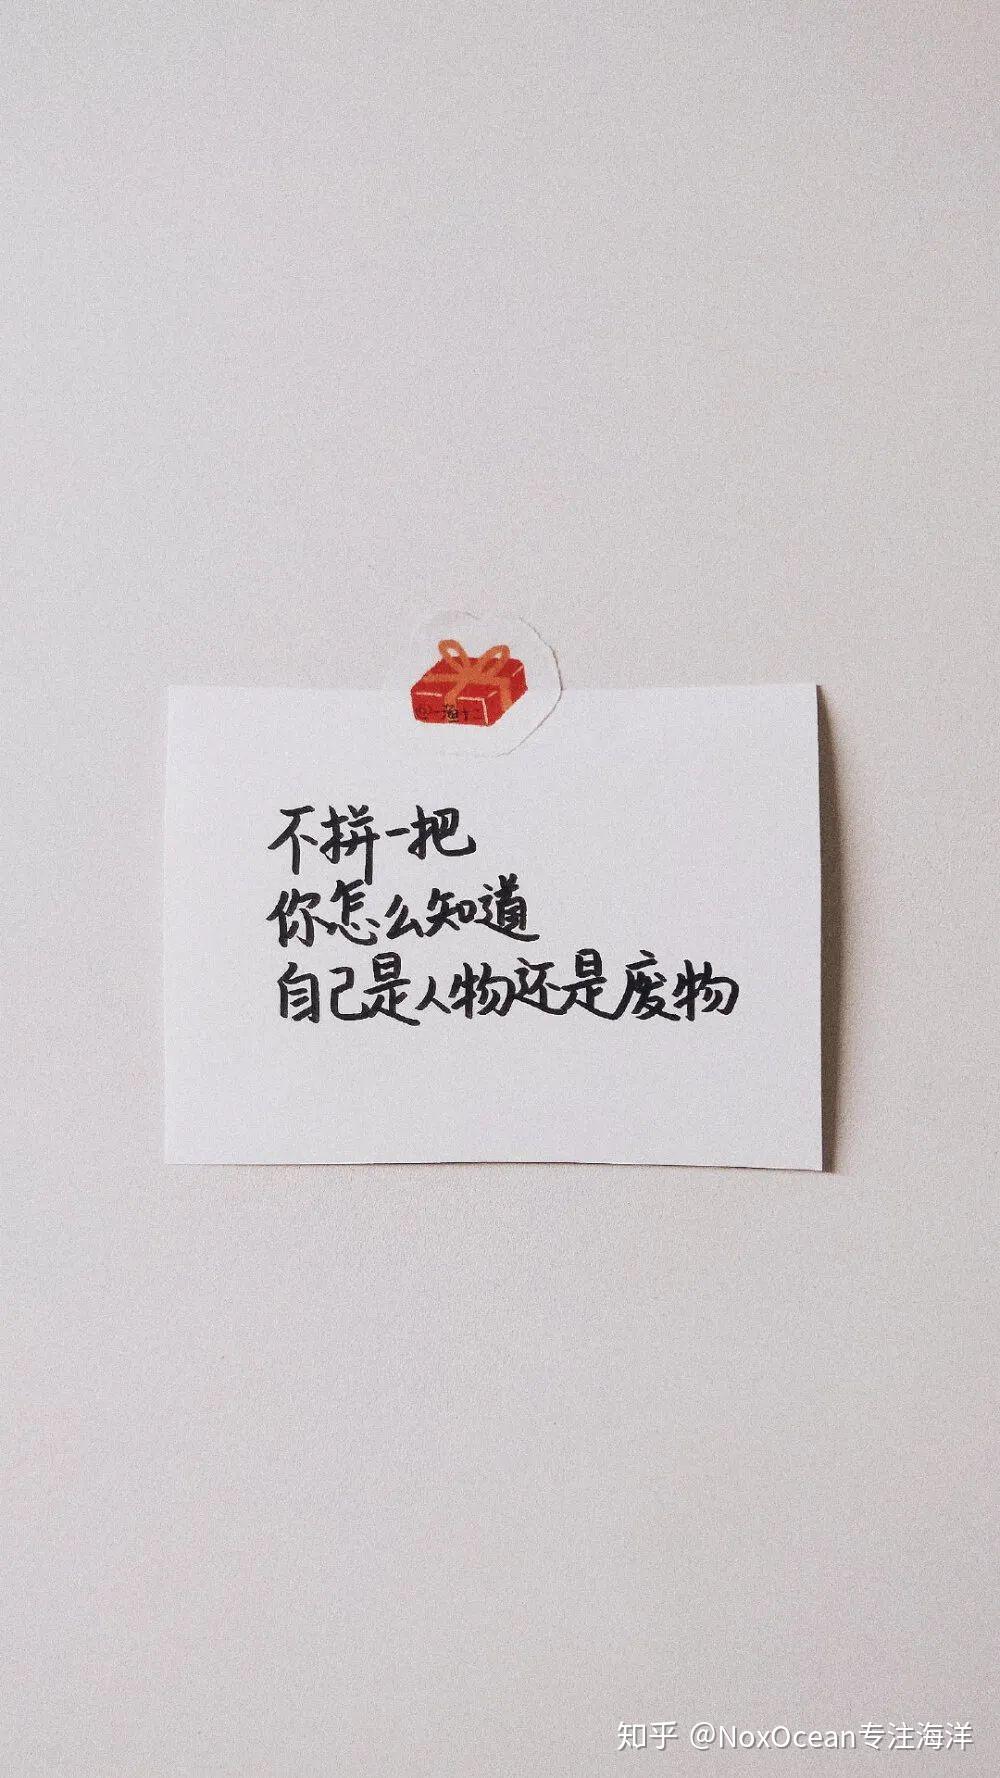 不拼一把
你怎么知道
自己是人物还是废物
知乎 @NoxOcean专注海洋